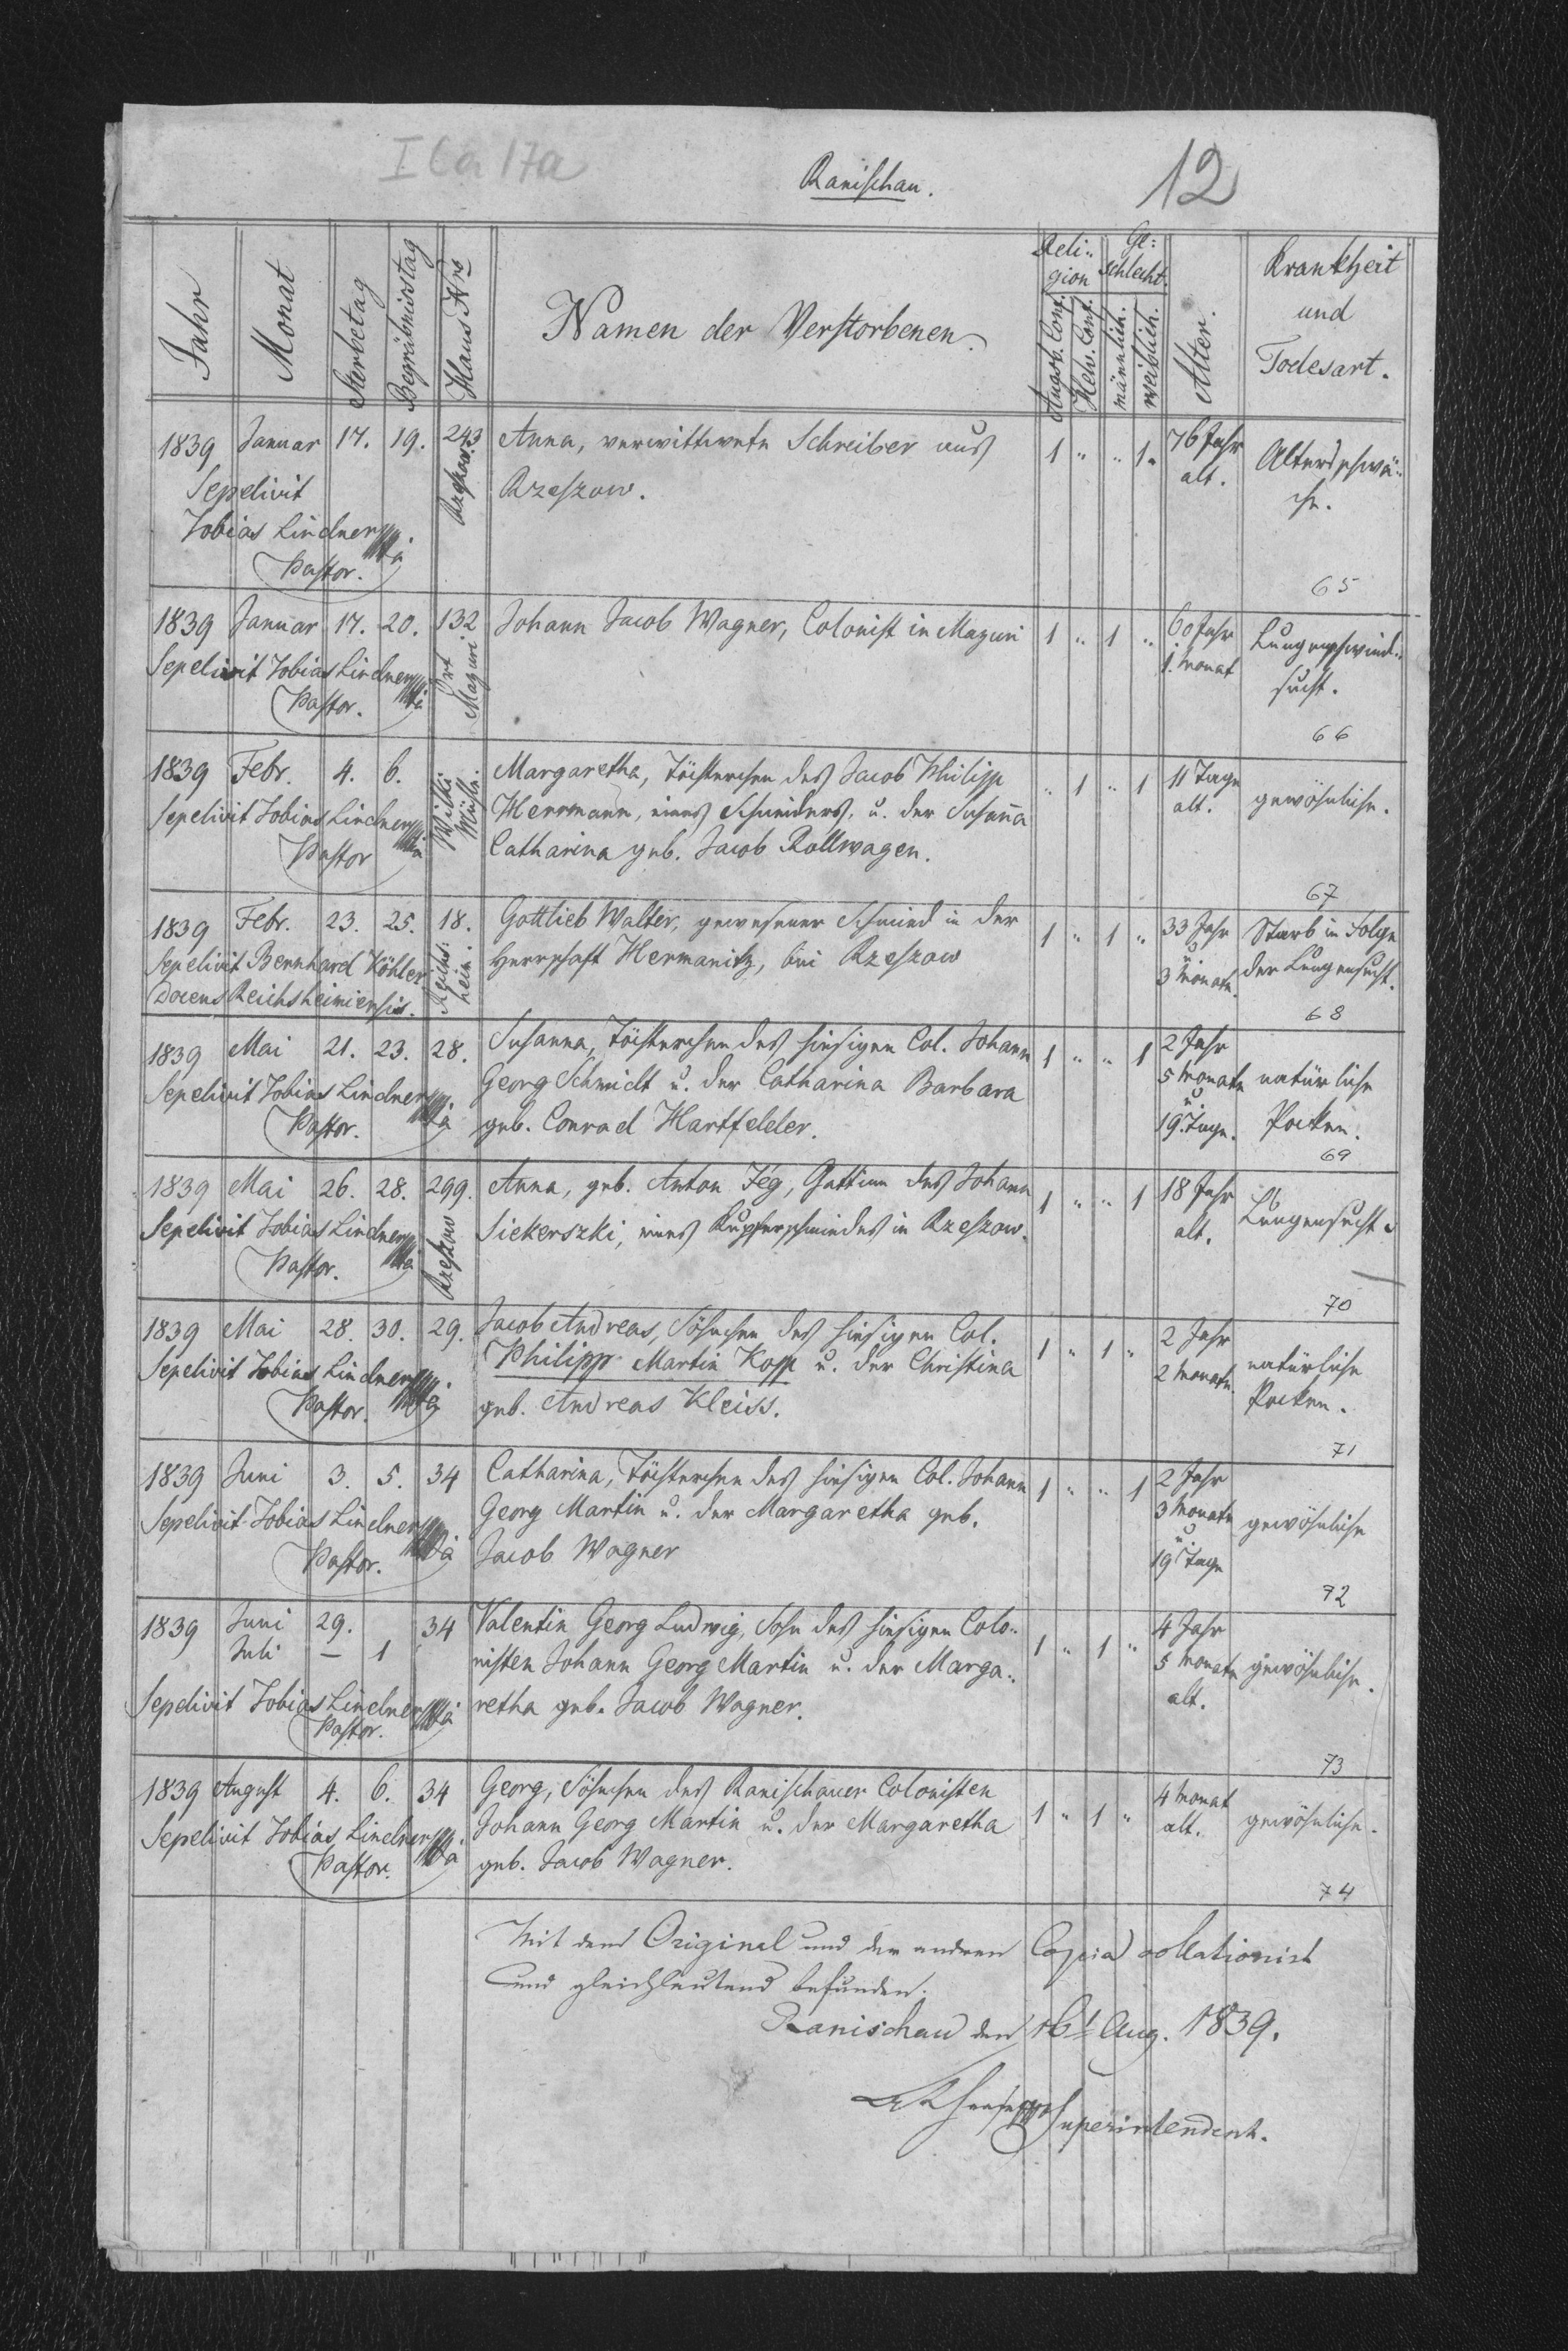 I Ca 17a
Ranischau.
12
Jahr
Monat
Sterbetag
Begräbnisstag
Haus Nro
Namen der Verstorbenen.
Reli-
gion
Augsb. Conf.
Helv. Conf.
Ge:
schlecht.
männlich.
weiblich.
Alter.
Krankheit
und
Todesart.
1839 Januar 17. 19. 243 Anna, verwittwete Schreiber aus 1 " " 1. 76 Jahr Altersschwä-
Sepelivit Rzeszow. Rzeszow. alt. che.
Tobias Lindner
Pastor.
65
1839 Januar 17. 20. 132 Johann Jacob Wagner, Colonist in Mazuri 1 " 1 " 60 Jahr Lungenschwind-
Sepelivit Tobias Lindner Ort Mazuri 1. Monat sucht.
Pastor.
66
1839 Febr. 4. 6. Margaretha, Töchterchen des Jacob Philipp " 1 " 1 11 Tage gewöhnliche.
Sepelivit Tobias Lindner Wilki Mühle. Herrmann, eines Schneiders, u. der Susanna alt.
Pastor Catharina geb. Jacob Rollwagen.
67
1839 Febr. 23. 25. 18. Gottlieb Walter, gewesener Schmied in der 1 " 1 " 33 Jahr Starb in Folge
Sepelivit Bernhard Köhler Reichsheim. Herrschaft Hermanitz, bei Rzeszow u. 3 Monate. der Lungensucht.
Docens Reichsheimiensis.
68
1839 Mai 21. 23. 28. Susanna, Töchterchen des hiesigen Col. Johann 1 " " 1 2 Jahr
Sepelivit Tobias Lindner Georg Schmidt u. der Catharina Barbara 5 Monate natürliche
Pastor. geb. Conrad Hartfelder. u. 19. Tage. Pocken.
69
1839 Mai 26. 28. 299. Anna, geb. Anton Jég, Gattinn des Johann 1 " " 1 18 Jahr Lungensucht.
Sepelivit Tobias Lindner Rzeszow Siekerszki, eines Kupferschmiedes in Rzeszow. alt.
Pastor.
70
1839 Mai 28. 30. 29. Jacob Andreas, Söhnchen des hiesigen Col. 1 " 1 " 2 Jahr
Sepelivit Tobias Lindner Philipp Martin Kopp u. der Christina 2 Monate. natürliche
Pastor. geb. Andreas Kleiss. Pocken.
71
1839 Juni 3. 5. 34 Catharina, Töchterchen des hiesigen Col. Johann 1 " " 1 2 Jahr
Sepelivit Tobias Lindner Georg Martin u. der Margaretha geb. 3 Monate gewöhnliche
Pastor. Jacob Wagner u. 19 Tage
72
1839 Juni 29. 34 Valentin Georg Ludwig, Sohn des hiesigen Colo- 1 " 1 " 4 Jahr
Juli — 1 nisten Johann Georg Martin u. der Marga- 5 Monate gewöhnliche.
Sepelivit Tobias Lindner retha geb. Jacob Wagner. alt.
Pastor.
73
1839 August 4. 6. 34 Georg, Söhnchen des Ranischauer Colonisten 1 " 1 " 4 Monat gewöhnliche.
Sepelivit Tobias Lindner Johann Georg Martin u. der Margaretha alt.
Pastor. geb. Jacob Wagner.
74
Mit dem Original und der andren Copia collationirt
und gleichlautend befunden.
Ranischau den 16t Aug. 1839.
Superintendent.